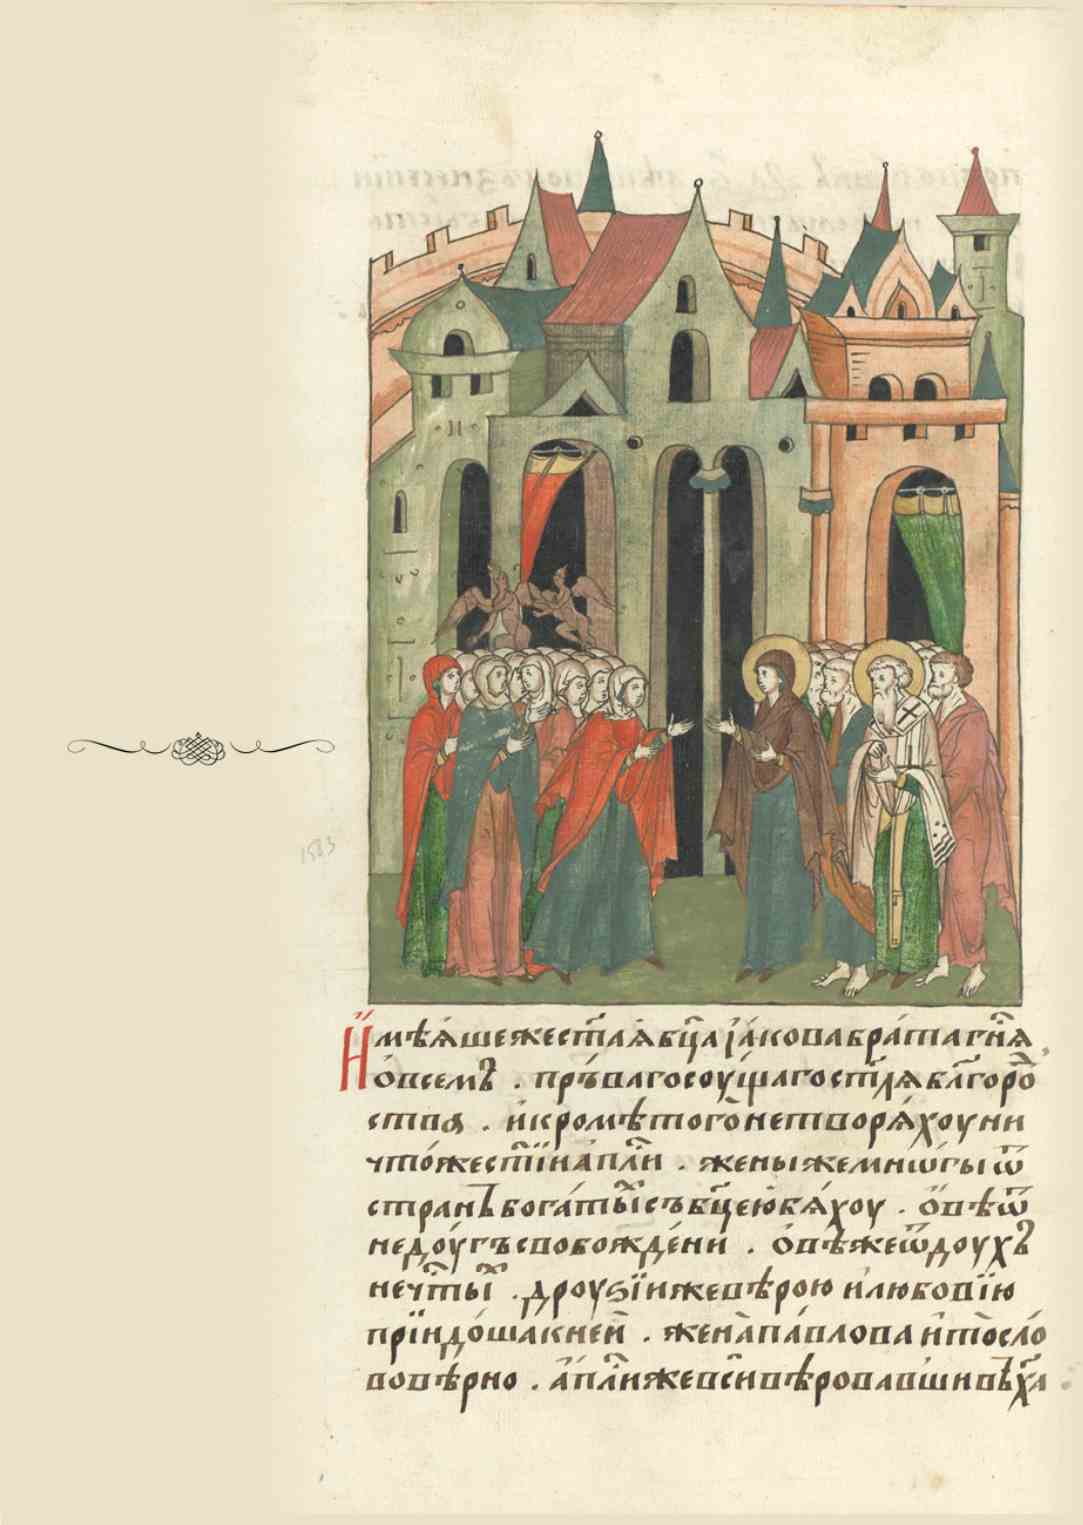 Имѣѧшежестⷭ҇аѧбц҃аіаковабратагнⷭ҇ѧ
ѡвсемъ . пръвагосоущагостлⷮѧблг҃оро
ства . икромѣтогонетворѧхоуни
чтожестⷭ҇іиапⷭ҇ли . женыжемнѡгыѿ
странъбогатыⷯсъбц҃еюбѧхоу . ѡвѣѿ
недоугъсвобождени . ѡвѣжеѿдоухъ
нечⷭ҇тыⷯ . дроуѕіижевѣрою илюбовїю
прїидошакнеи . женапавлова итосло
вовѣрно . апⷭ҇лижевсивѣровавшивъх҃а
1583